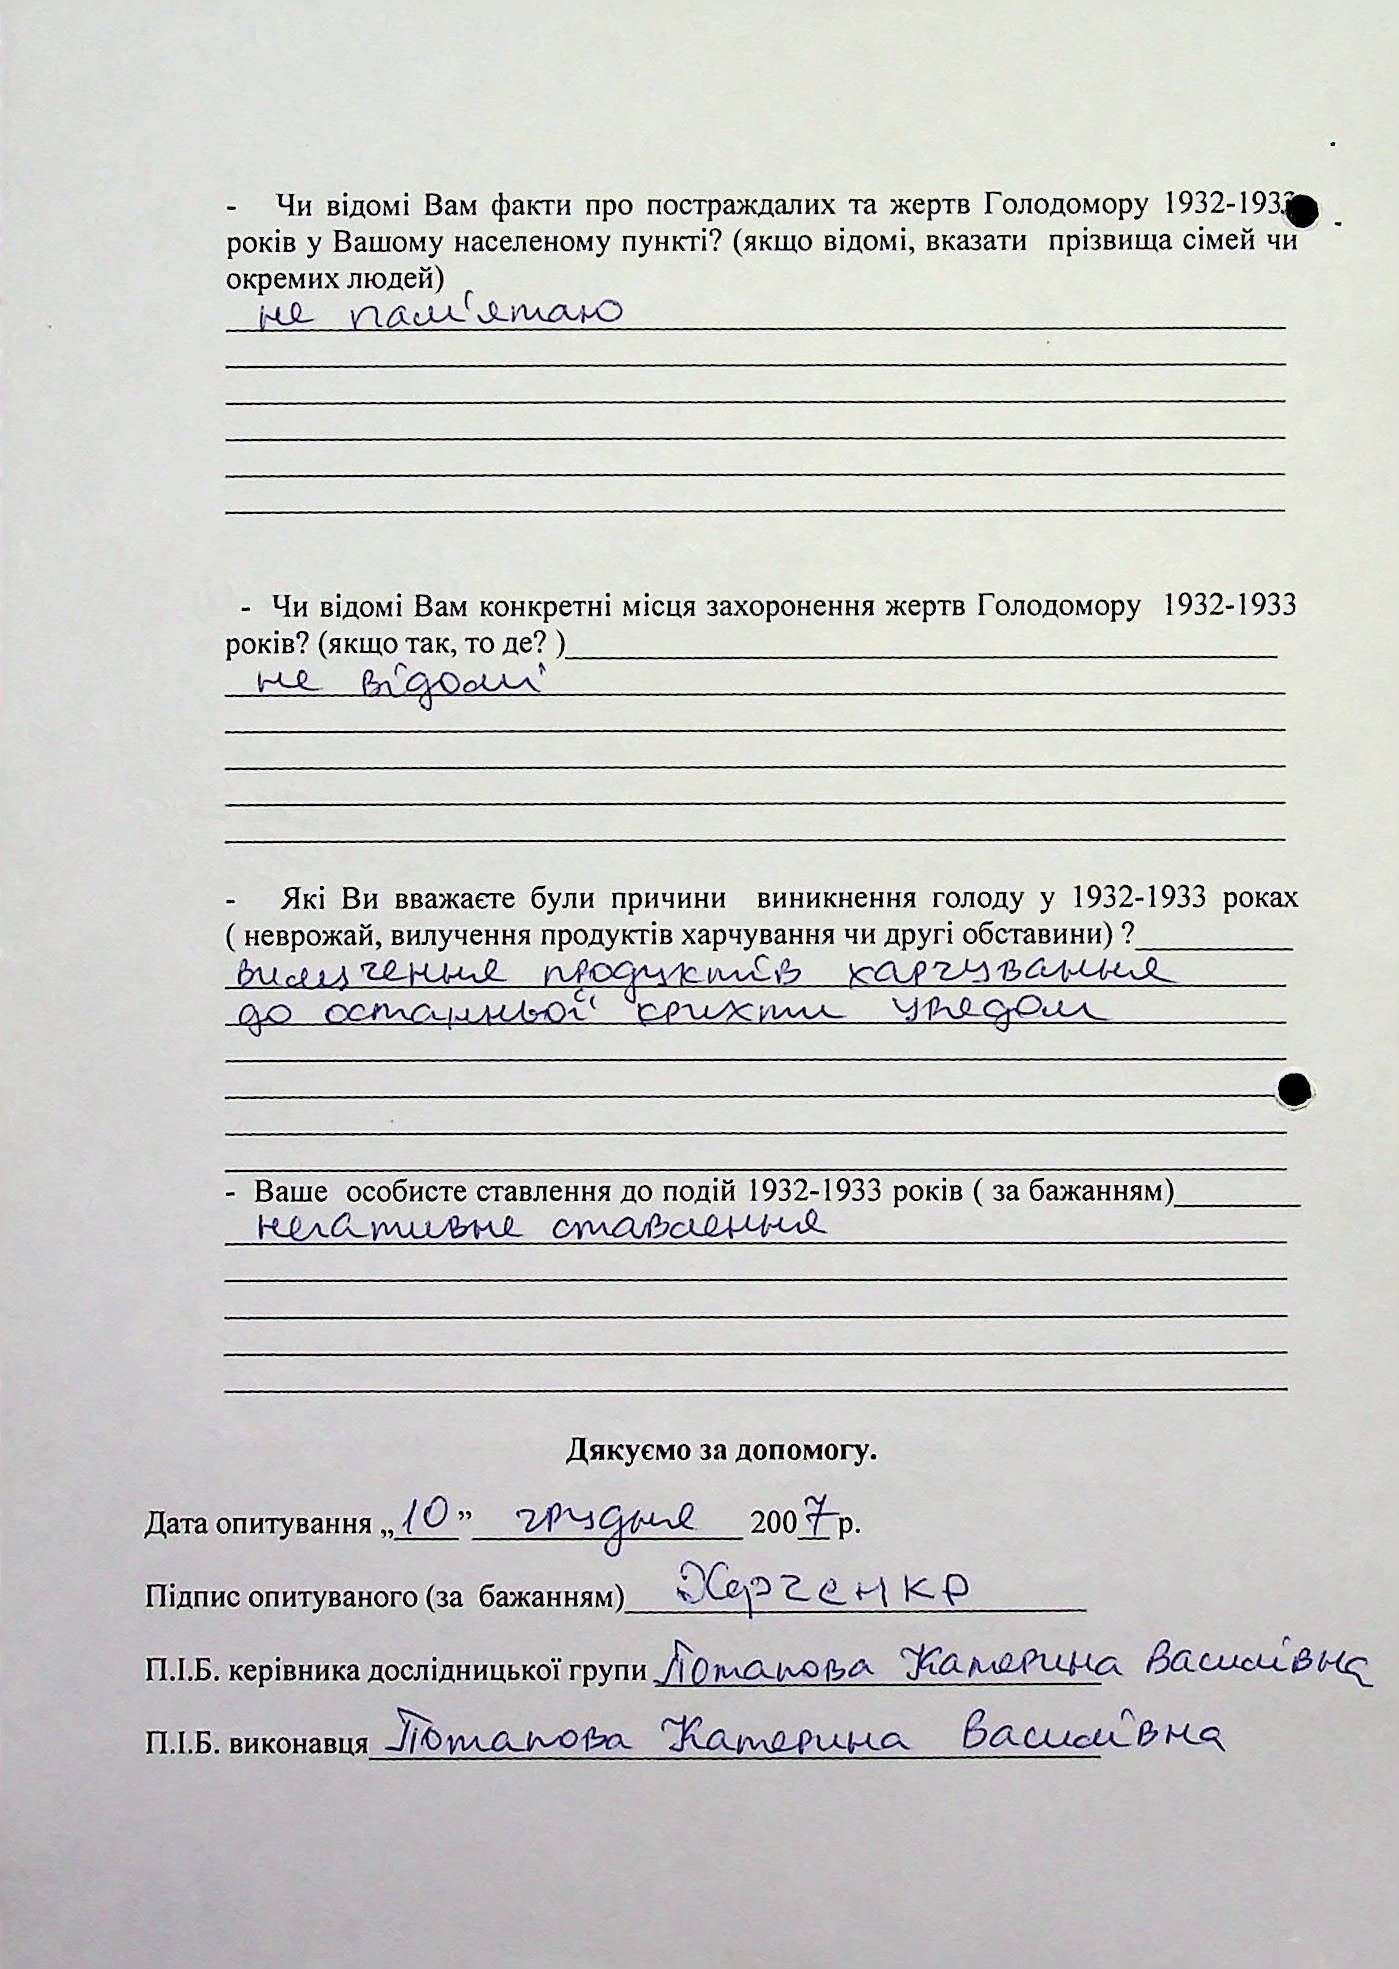 - Чи відомі Вам факти про постраждалих та жертв Голодомору 1932-1933
років у Вашому населеному пункті? (якщо відомі, вказати прізвища сімей чи
окремих людей)
не пам'ятаю
- Чи відомі Вам конкретні місця захоронення жертв Голодомору 1932-1933
років? (якщо так, то де? )
не відомі
- Які Ви вважаєте були причини виникнення голоду у 1932-1933 роках
( неврожай, вилучення продуктів харчування чи другі обставини) ?
вилучення продуктів харчування
до останньої крихти урядом
- Ваше особисте ставлення до подій 1932-1933 років ( за бажанням)
негативне ставлення
Дякуємо за допомогу.
Дата опитування „10” грудня 2007 р.
Підпис опитуваного (за бажанням)
П.І.Б. керівника дослідницької групи Потапова Катерина Василівна
П.І.Б. виконавця Потапова Катерина Василівна